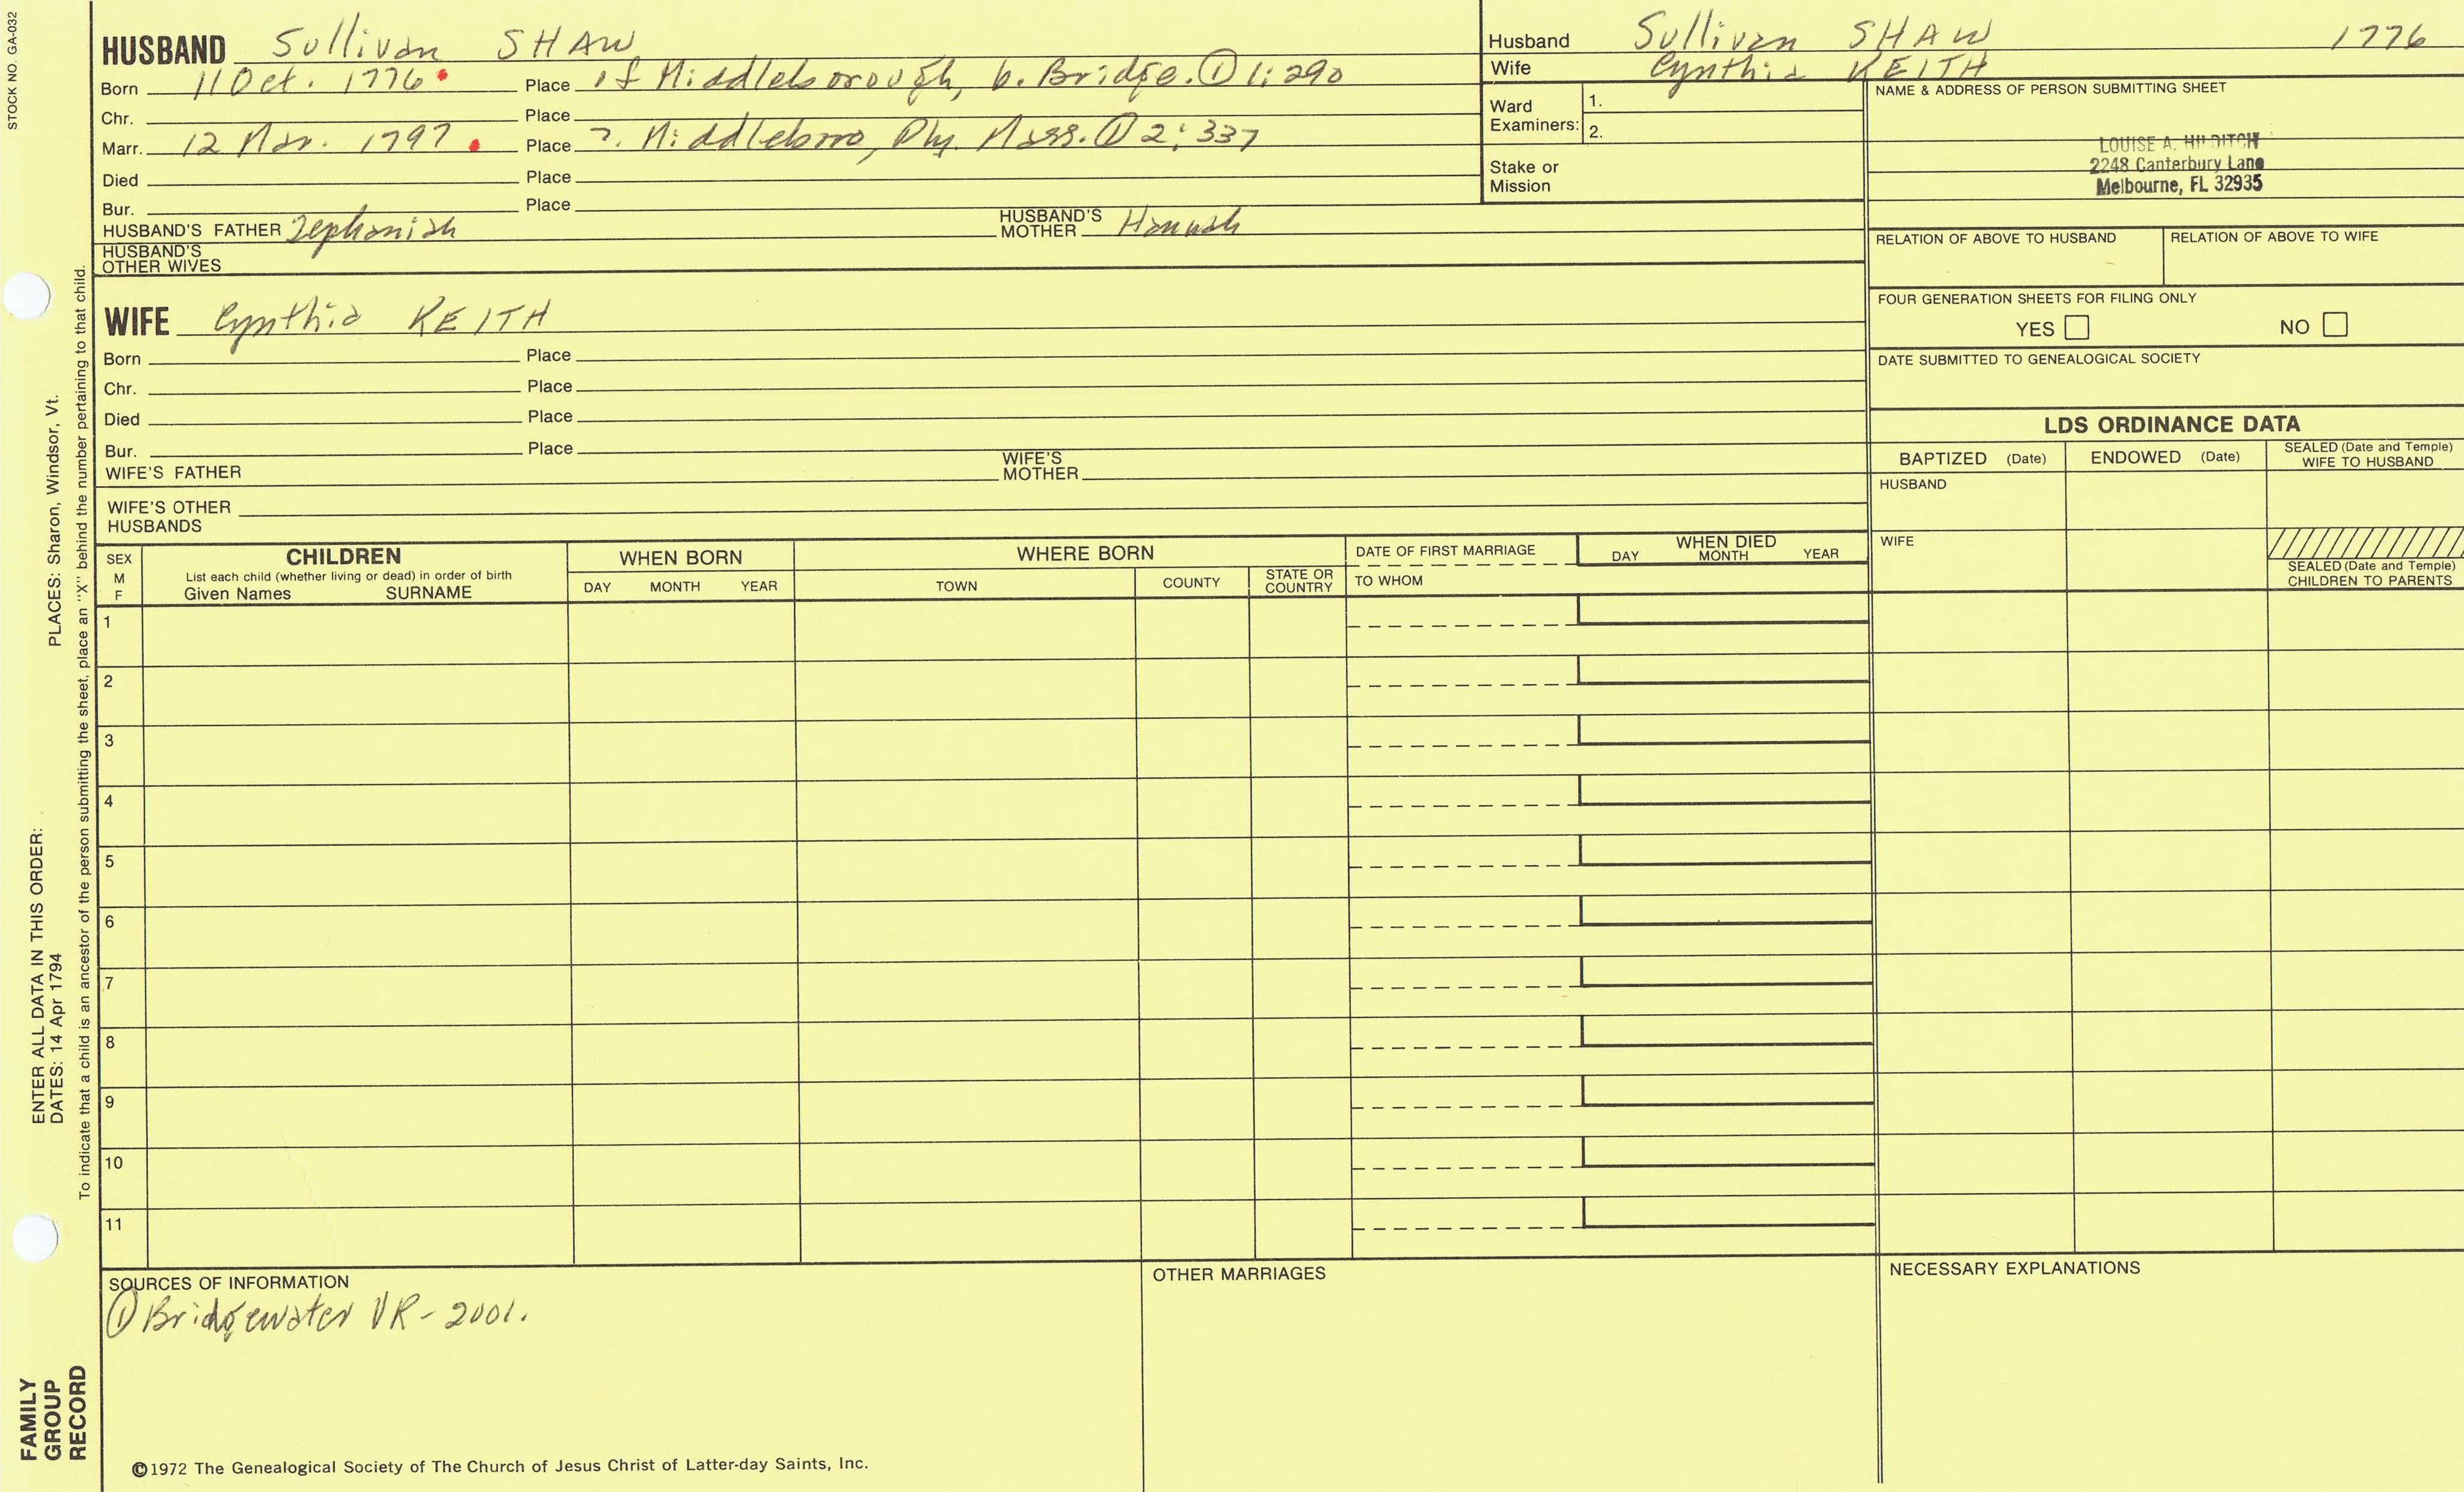 STOCK NO. GA-032
HUSBAND Sullivan SHAW
Born 11 Oct. 1776 Place of Middleborough, b. Bridge. ① 1:290
Chr. Place
Marr. 12 Mar. 1797 Place ?. Middleboro, Ply. Mass. ① 2:337
Died Place
Bur. Place
HUSBAND'S FATHER Zephaniah HUSBAND'S MOTHER Hannah
HUSBAND'S OTHER WIVES
Husband Sullivan SHAW 1776
Wife Cynthia KEITH
Ward Examiners: 1.
2.
Stake or Mission
NAME & ADDRESS OF PERSON SUBMITTING SHEET
LOUISE A. HILDITCH
2248 Canterbury Lane
Melbourne, FL 32935
RELATION OF ABOVE TO HUSBAND RELATION OF ABOVE TO WIFE
FOUR GENERATION SHEETS FOR FILING ONLY
YES NO
DATE SUBMITTED TO GENEALOGICAL SOCIETY
WIFE Cynthia KEITH
Born Place
Chr. Place
Died Place
Bur. Place
WIFE'S FATHER WIFE'S MOTHER
WIFE'S OTHER HUSBANDS
LDS ORDINANCE DATA
BAPTIZED (Date) ENDOWED (Date) SEALED (Date and Temple) WIFE TO HUSBAND
HUSBAND
WIFE
SEALED (Date and Temple) CHILDREN TO PARENTS
SEX M F
CHILDREN
List each child (whether living or dead) in order of birth
Given Names SURNAME
WHEN BORN
DAY MONTH YEAR
WHERE BORN
TOWN COUNTY STATE OR COUNTRY
DATE OF FIRST MARRIAGE
TO WHOM
WHEN DIED
DAY MONTH YEAR
1
2
3
4
5
6
7
8
9
10
11
SOURCES OF INFORMATION
① Bridgewater VR - 2001.
OTHER MARRIAGES
NECESSARY EXPLANATIONS
©1972 The Genealogical Society of The Church of Jesus Christ of Latter-day Saints, Inc.
FAMILY
GROUP
RECORD
ENTER ALL DATA IN THIS ORDER:
DATES: 14 Apr 1794 PLACES: Sharon, Windsor, Vt.
To indicate that a child is an ancestor of the person submitting the sheet, place an "X" behind the number pertaining to that child.